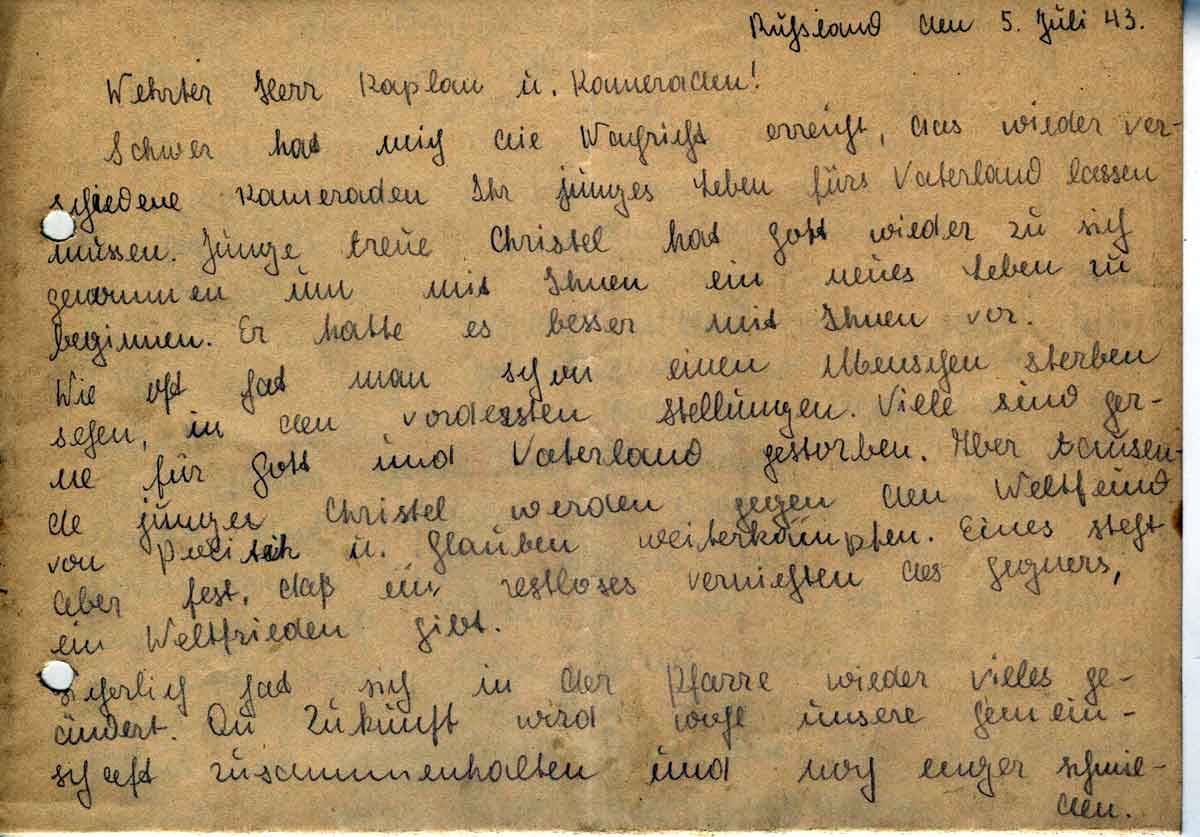 Rußland den 5. Juli 43.
Wehrter Herr Kaplan u. Kameraden!
Schwer hat mich die Nachricht erreicht, das wieder ver-
schiedene Kameraden Ihr junges Leben fürs Vaterland lassen
müssen. Junge treue Christel hat Gott wieder zu sich
genommen um mit Ihnen ein neues Leben zu
beginnen. Er hatte es besser mit Ihnen vor.
Wie oft hat man schon einen Menschen sterben
sehen, in den vordersten Stellungen. Viele sind ger-
ne für Gott und Vaterland gestorben. Aber tausen-
de junger Christel werden gegen den Weltfeind
von u. Glauben weiterkämpfen. Eines steht
aber fest, daß ein restloses vernichten des Gegners,
ein Weltfrieden gibt.
Sicherlich hat sich in der Pfarre wieder vieles ge-
ändert. In Zukunft wird wohl unsere Gemein-
schaft zusammenhalten und noch enger schmie-
den.